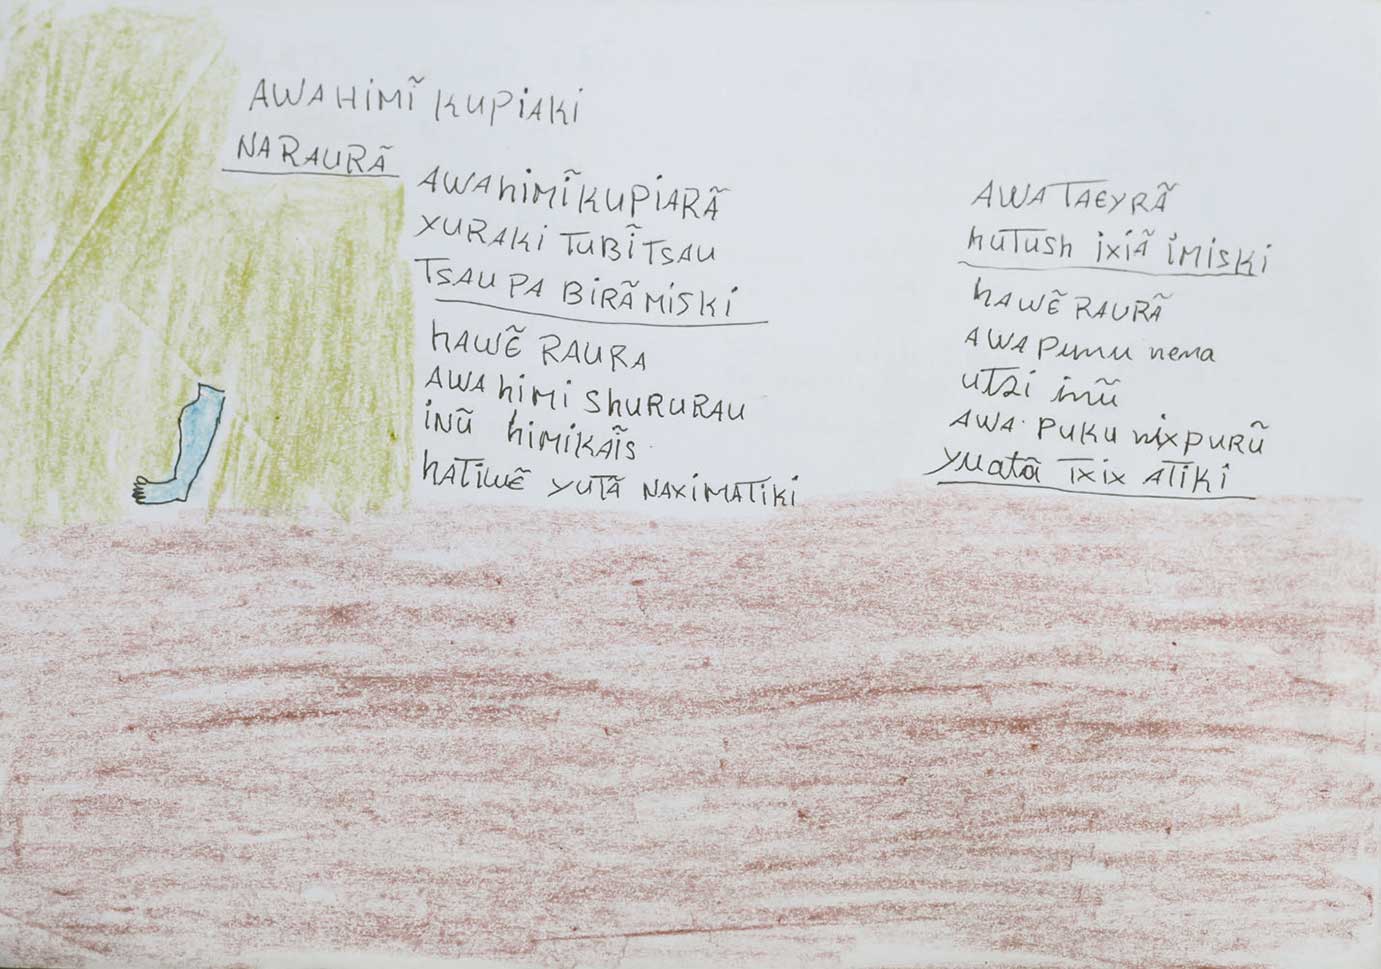 AWAHIMĨ KUPIAKI
NARAURÃ
AWAHIMĨKUPIARÃ
YURAKI TUBĨTSAU
TSAUPA BIRÃMISKI
HAWẼ RAURA
AWA HIMI SHURURAU
INŨ HIMIKAĨS
HATIWẼ YUTÃ NAXIMATIKI
AWA TAEYRÃ
HUTUSH IXIÃ IMISKI
HAWẼ RAURÃ
AWA PUMU nema
UTZI inũ
AWA PUKU NIXPURŨ
yuatã TXIX ATIKI